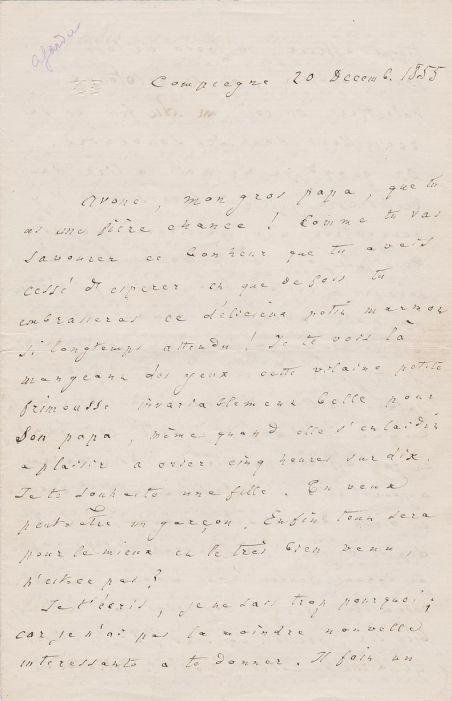 a garder
Compiegne 20 Decemb. 1855
Avoue, mon gros papa, que tu
as une fière chance ! Comme tu vas
savourer ce bonheur que tu avais
cessé d'esperer et que de fois tu
embrasseras ce délicieux petit marmot
si longtemps attendu ! Je te vois là
mangeant des yeux cette vilaine petite
frimousse invariablement belle pour
son papa, même quand elle s'enlaidit
a plaisir a crier cinq heures sur dix.
Je te souhaite une fille. Tu veux
peut-être un garçon. Enfin tout sera
pour le mieux et le très bien venu,
n'est ce pas ?
Je t'écris, je ne sais trop pourquoi ;
car je n'ai pas la moindre nouvelle
interessante a te donner. Il fait un